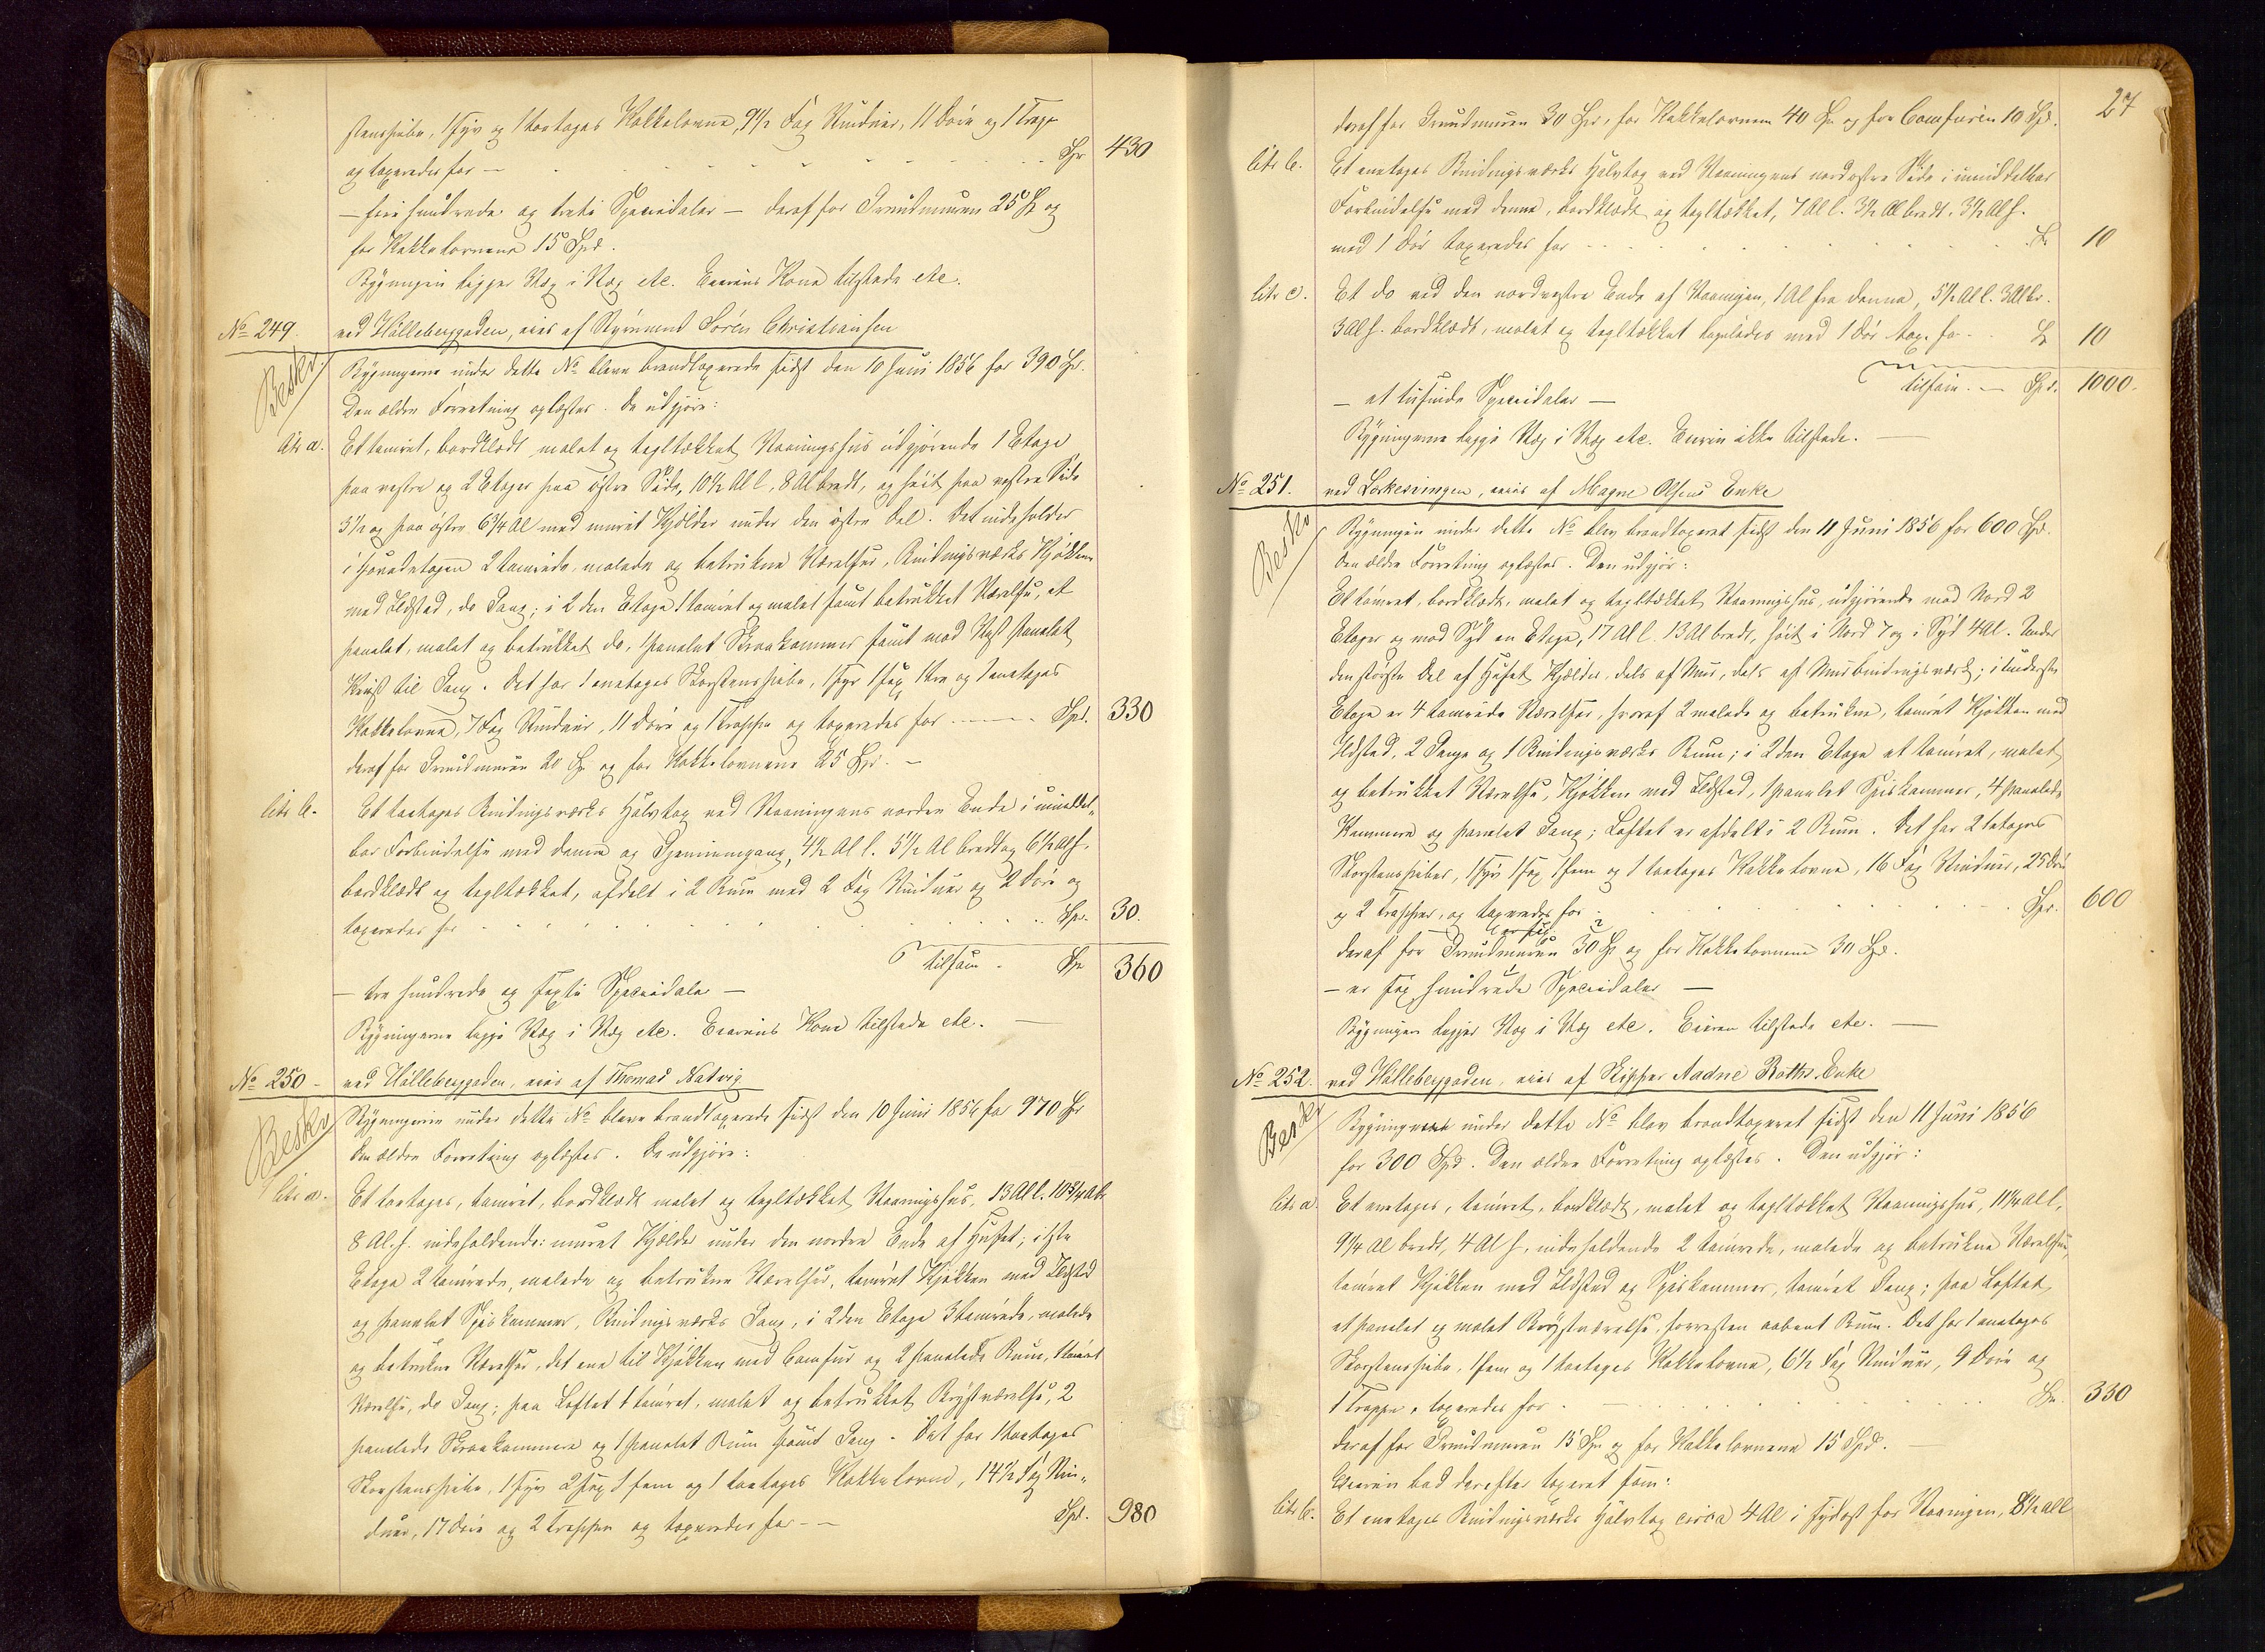 stenspibe, 1 fyr og 1 toetages Kakkelovne, 9 1/2 Fag Vinduer, 11 Døre og 1 Trappe
og taxeredes for — Spd 430
— fire hundrede og treti Speciedaler — deraf for Grundmuren 25 Sp og
for Kakkelovnene 15 Spd.
Bygningen ligger Væg i Væg etc. Eierens Kone tilstede etc.
No 249. ved Hölleberggaden, eies af Styrmand Sören Christiansen
Beskr
Bygningerne under dette No bleve brandtaxerede sidst den 10 Juni 1856 for 390 Spd.
Den ældre Forretning oplæstes. De udgjöre:
Litr a. Et tømret, bordklædt malet og tegltækket Vaaningshus udgjørende 1 Etage
paa vestre og 2 Etager paa østre Side, 10 1/2 Al l., 8 Al bredt, og høit paa vestre Side
5 1/2 og paa østre 6 3/4 Al med muret Kjælder under den østre Del. Det indeholder
i Hovedetagen 2 tømrede, malede og betrukne Værelser, Bindingsværks Kjøkken
med Ildsted, do Gang; i 2den Etage 1 tømret og malet samt betrukket Værelse, et
panelet, malet og betrukket do, 1 panelet Skraakammer samt med Vest panelet
Kvist til Gang. Det har 1 enetages Skorstenspibe, 1 fyr 1 sex 1 tre og 1 enetages
Kakkelovne, 7 Fag Vinduer, 11 Døre og 1 Trappe og taxeredes for — Spd. 330
deraf for Grundmuren 20 Sp og for Kakkelovnene 25 Spd. —
Litr b. Et toetages Bindingsværks Halvtag ved Vaaningens nordre Ende i umiddel„
bar Forbindelse med denne og Gjennemgang, 4 1/2 Al l. 5 1/2 Al bredt og 6 1/2 Al h.
bordklædt og tegltækket, afdelt i 2 Rum med 2 Fag Vinduer og 2 Døre og
taxeredes for Spd. 30.
tilsam. Spd 360
— tre hundrede og sexti Speciedaler —
Bygningerne ligge Væg i Væg etc. Eierens Kone tilstede etc. —
No 250 - ved Hölleberggaden, eies af Thomas Natvig
Beskr
Bygningerne under dette No bleve brandtaxerede sidst den 10 Juni 1856 for 970 Spd
Den ældre Forretning oplæstes. De udgjøre:
Litr a. Et toetages, tømret, bordklædt malet og tegltækket Vaaningshus, 13 Al l. 10 3/4 Al b.
8 Al. h. indeholdende: muret Kjælder under den nordre Ende af Huset; i 1ste
Etage 2 tømrede, malede og betrukne Værelser, tømret Kjøkken med Ildsted
og panelet Spiskammer, Bindingsværks Gang, i 2den Etage 3 tømrede, malede
og betrukne Værelser, det ene til Kjøkken med Comfur og 2 panelede Rum, 1 tømret
Værelse, do Gang; paa Loftet 1 tømret, malet og betrukket Kvistværelse, 2
panelede Skraakammere og 1 panelet Rum samt Gang. Det har 1 toetages
Skorstenspibe, 1 fyr 2 sex 1 fem og 1 toetages Kakkelovne, 14 1/2 Fag Vin„
duer, 17 Døre og 2 Trapper og taxeredes for — Spd. 980
27
deraf for Grundmuren 30 Spd, for Kakkelovnene 40 Sp og for Comfuren 10 Spd.
Litr b. Et enetages Bindingsværks Halvtag ved Vaaningens nordøstre Side i umiddelbar
Forbindelse med denne, bordklædt og tegltækket, 7 Al l. 3 1/2 Al bredt, 3 1/2 Al h.
med 1 Dør taxeredes for Sp 10
Litr c. Et do ved den nordvestre Ende af Vaaningen, 1 Al fra denne, 5 1/2 Al l. 3 Al br.
3 Al h. bordklædt, malet og tegltækket ligeledes med 1 Dør tax. for Sp 10
tilsam. — Spd. 1000.
— et tusinde Speciedaler —
Bygningerne ligge Væg i Væg etc. Eieren ikke tilstede. —
No 251. ved Lorkesvingen, eies af Magne Olsens Enke
Beskr
Bygningen under dette No blev brandtaxeret sidst den 11 Juni 1856 for 600 Spd.
Den ældre Forretning oplæstes. Den udgjør:
Et tømret, bordklædt, malet og tegltækket Vaaningshus, udgjørende mod Nord 2
Etager og mod Syd en Etage, 17 Al l. 13 Al bredt, høit i Nord 7 og i Syd 4 Al. Under
den største Del af Huset Kjælder, dels af Mur, dels af Murbindingsværk; i underste
Etage er 4 tømrede Værelser, hvoraf 2 malede og betrukne, tømret Kjøkken med
Ildsted, 2 Gange og 1 Bindingsværks Rum; i 2den Etage et tømret, malet
og betrukket Værelse, Kjøkken med Ildsted, 1 panelet Spiskammer, 4 panelede
Kammere og panelet Gang; Loftet er afdelt i 2 Rum. Det har 2 toetages
Skorstenspiber, 1 fyr 1 sex 1 fem og 1 toetages Kakkelovne, 16 Fag Vinduer, 25 Døre
og 2 Trapper, og taxeredes for Spd. 600
deraf for Grundmuren 30 Sp og for Kakkelovnene 30 Spd.
— er sex hundrede Speciedaler —
Bygningen ligger Væg i Væg etc. Eieren tilstede etc. —
No 252. ved Hölleberggaden, eies af Skipper Aadne Roths Enke
Beskr
Bygningen under dette No blev brandtaxeret sidst den 11 Juni 1856
for 300 Spd. Den ældre Forretning oplæstes. Den udgjør:
Litr a. Et enetages, tømret, bordklædt, malet og tegltækket Vaaningshus, 11 1/4 Al l.
9 1/4 Al bredt, 4 Al h, indeholdende 2 tømrede, malede og betrukne Værelser,
tømret Kjøkken med Ildsted og Spiskammer, tømret Gang; paa Loftet
et panelet og malet Kvistværelse, forresten aabent Rum. Det har 1 enetages
Skorstenspibe, 1 fem og 1 toetages Kakkelovne, 6 1/2 Fag Vinduer, 9 Døre og
1 Trappe, taxeredes for Sp. 330
deraf for Grundmuren 15 Spd og for Kakkelovnene 15 Spd.
Eieren bad derefter taxeret som:
Litr b. Et enetages Bindingsværks Halvtag circa 4 Al i Sydost for Vaaningen, 8 1/2 Al l